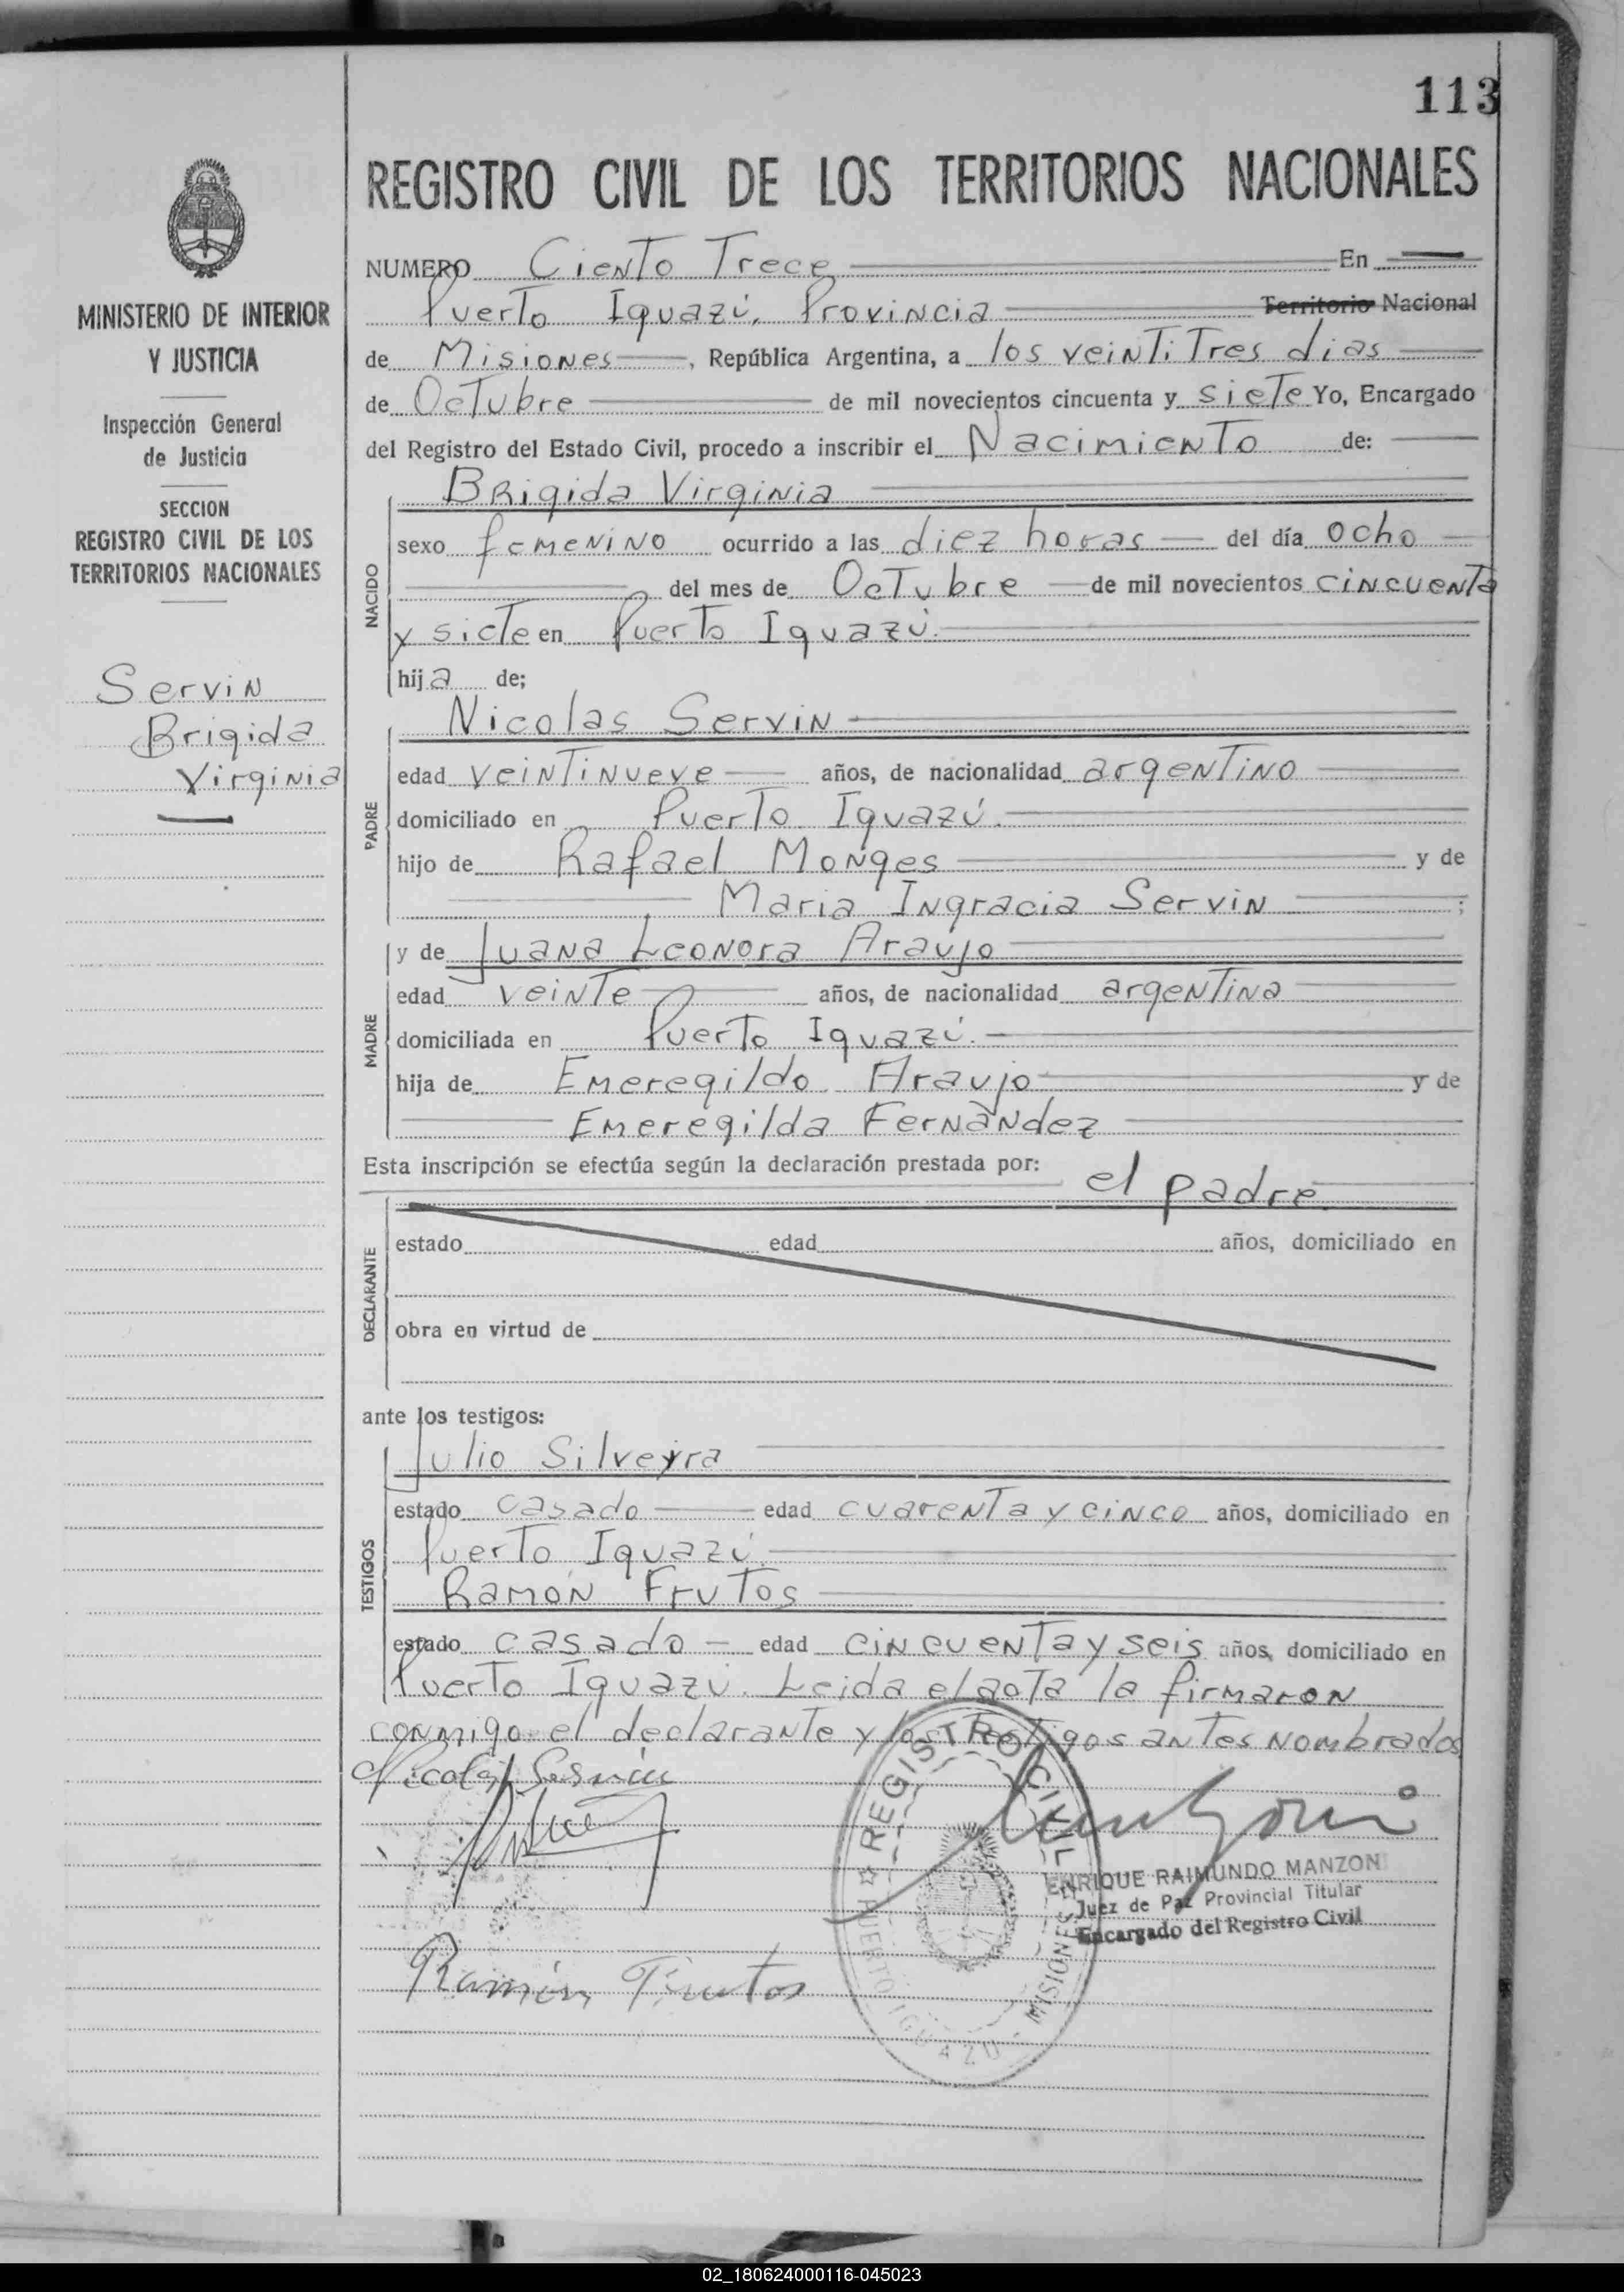 113
REGISTRO CIVIL DE LOS TERRITORIOS NACIONALES
MINISTERIO DE INTERIOR
Y JUSTICIA
Inspección General
de Justicia
SECCION
REGISTRO CIVIL DE LOS
TERRITORIOS NACIONALES
Servin
Brigida
Virginia
NUMERO Ciento Trece En
Puerto Iguazú. Provincia Territorio Nacional
de Misiones, República Argentina, a los veinti Tres dias
de Octubre de mil novecientos cincuenta y siete Yo, Encargado
del Registro del Estado Civil, procedo a inscribir el Nacimiento de:
NACIDO
Brigida Virginia
sexo femenino ocurrido a las diez horas del día ocho
del mes de Octubre de mil novecientos cincuenta
y siete en Puerto Iguazú.
hija de;
PADRE
Nicolas Servin
edad veintinueve años, de nacionalidad argentino
domiciliado en Puerto Iguazú.
hijo de Rafael Monges y de
Maria Ingracia Servin ;
MADRE
y de Juana Leonora Araujo
edad veinte años, de nacionalidad argentina
domiciliada en Puerto Iguazú.
hija de Emeregildo Araujo y de
Emeregilda Fernàndez
Esta inscripción se efectúa según la declaración prestada por: el padre
DECLARANTE
estado edad años, domiciliado en
obra en virtud de
ante los testigos:
TESTIGOS
Julio Silveyra
estado casado edad cuarenta y cinco años, domiciliado en
Puerto Iguazú.
Ramón Frutos
estado casado edad cincuenta y seis años, domiciliado en
Puerto Iguazú. Leida el acta la firmaron
conmigo el declarante y los testigos antes nombrados
Nicolas Servin
Ramón Frutos
REGISTRO CIVIL
PUERTO IGUAZU - MISIONES
ENRIQUE RAIMUNDO MANZONI
Juez de Paz Provincial Titular
Encargado del Registro Civil
02_180624000116-045023